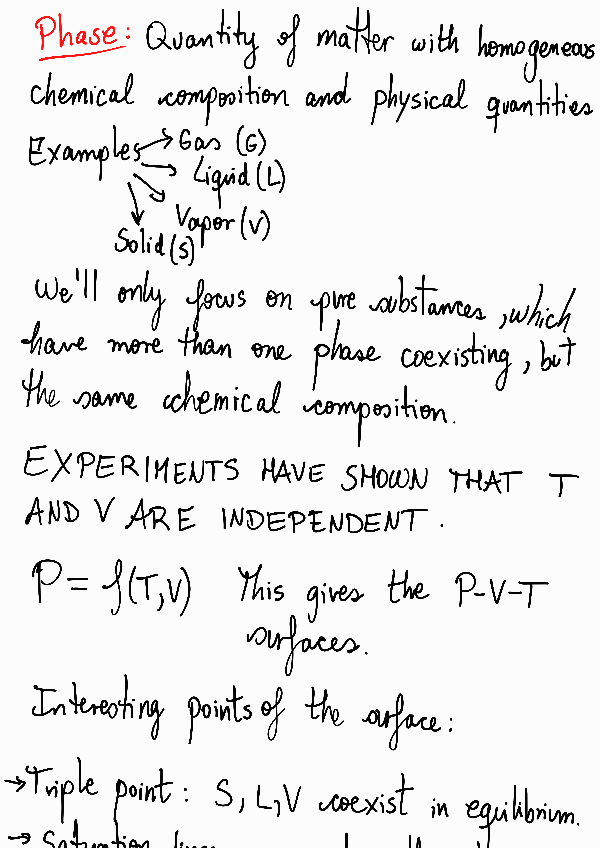 Phase: Quantity of matter with homogeneous
chemical composition and physical quantities
Examples → Gas (G)
→ Liquid (L)
→ Vapor (V)
→ Solid (S)
We'll only focus on pure substances, which
have more than one phase coexisting, but
the same chemical composition.
EXPERIMENTS HAVE SHOWN THAT T
AND V ARE INDEPENDENT.
P = f(T,V) This gives the P-V-T
surfaces.
Interesting points of the surface:
→ Triple point: S, L, V coexist in equilibrium.
→ Saturation